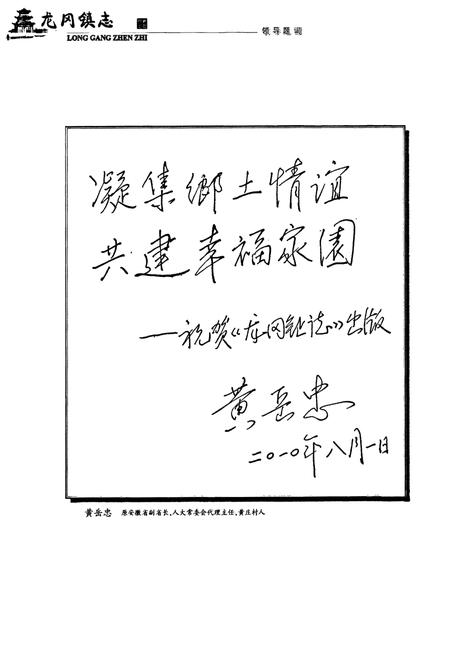 龙冈镇志
LONG GANG ZHEN ZHI
领导题词
凝集鄉土情谊
共建幸福家園
—祝贺《龙冈镇志》出版
黄岳忠
二〇一〇年八月一日
黄岳忠 原安徽省副省长、人大常委会代理主任,黄庄村人